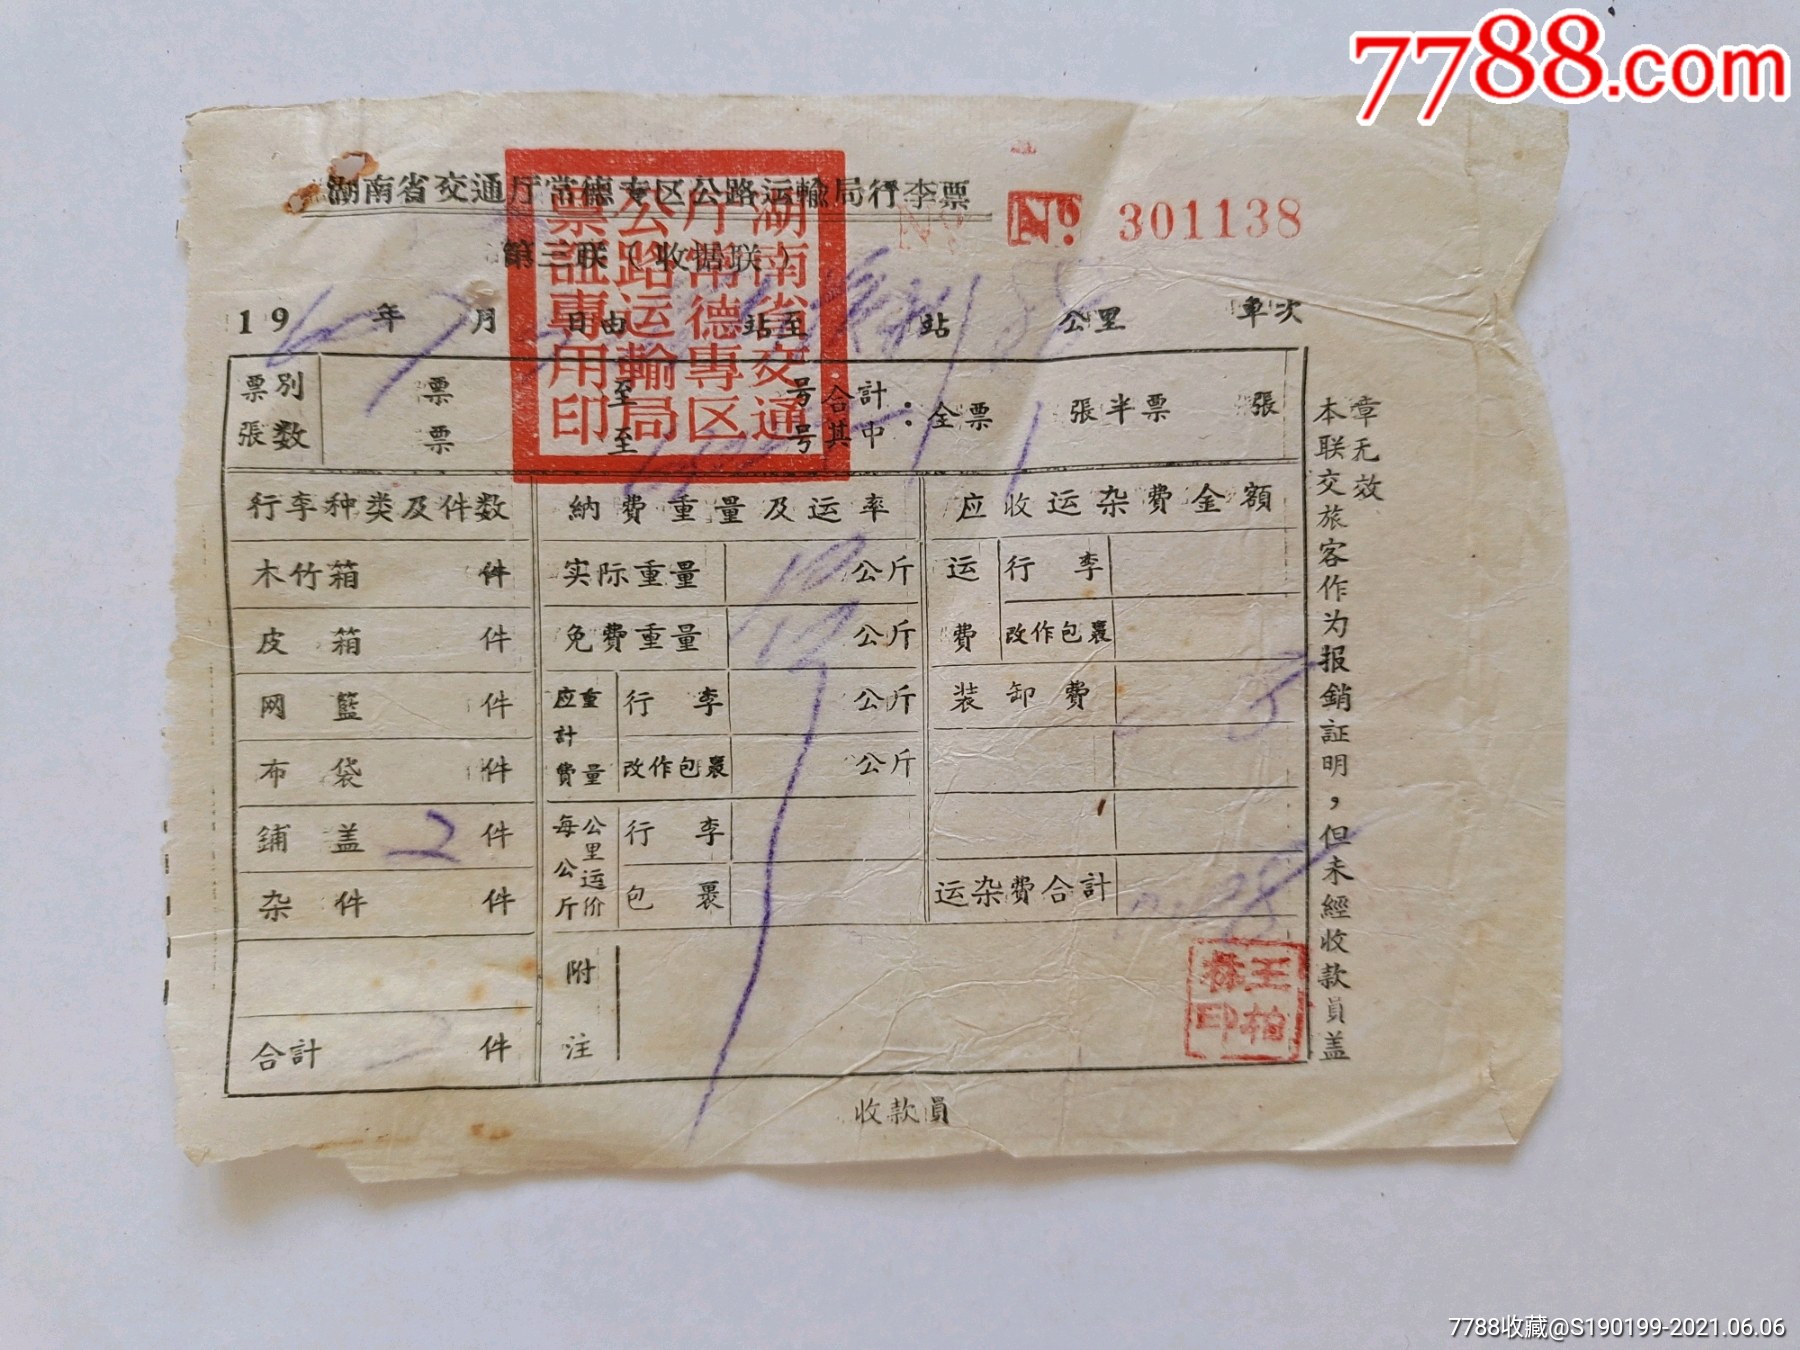 7788.com
湖南省交通厅常德专区公路运输局行李票
第三联（收据联）
№ 301138
湖南省交通厅常德專区公路运輸局票証專用印
19 年 月 日由 站至 站 公里 車次
票別張数
票 至 号合計：全票 張半票 張
票 至 号其中：
行李种类及件数 納費重量及运率 应收运杂费金額
木竹箱 件 实际重量 公斤 运費 行李
皮箱 件 免费重量 公斤 改作包裹
网籃 件 应計費重量 行李 公斤 装卸费
布袋 件 改作包裹 公斤
鋪盖 2 件 每公斤公里运价 行李
杂件 件 包裹 运杂费合計
附注
合計 件
收款員
王柏 印
本联交旅客作为报銷証明，但未經收款員盖
章无效
7788收藏@S190199-2021.06.06